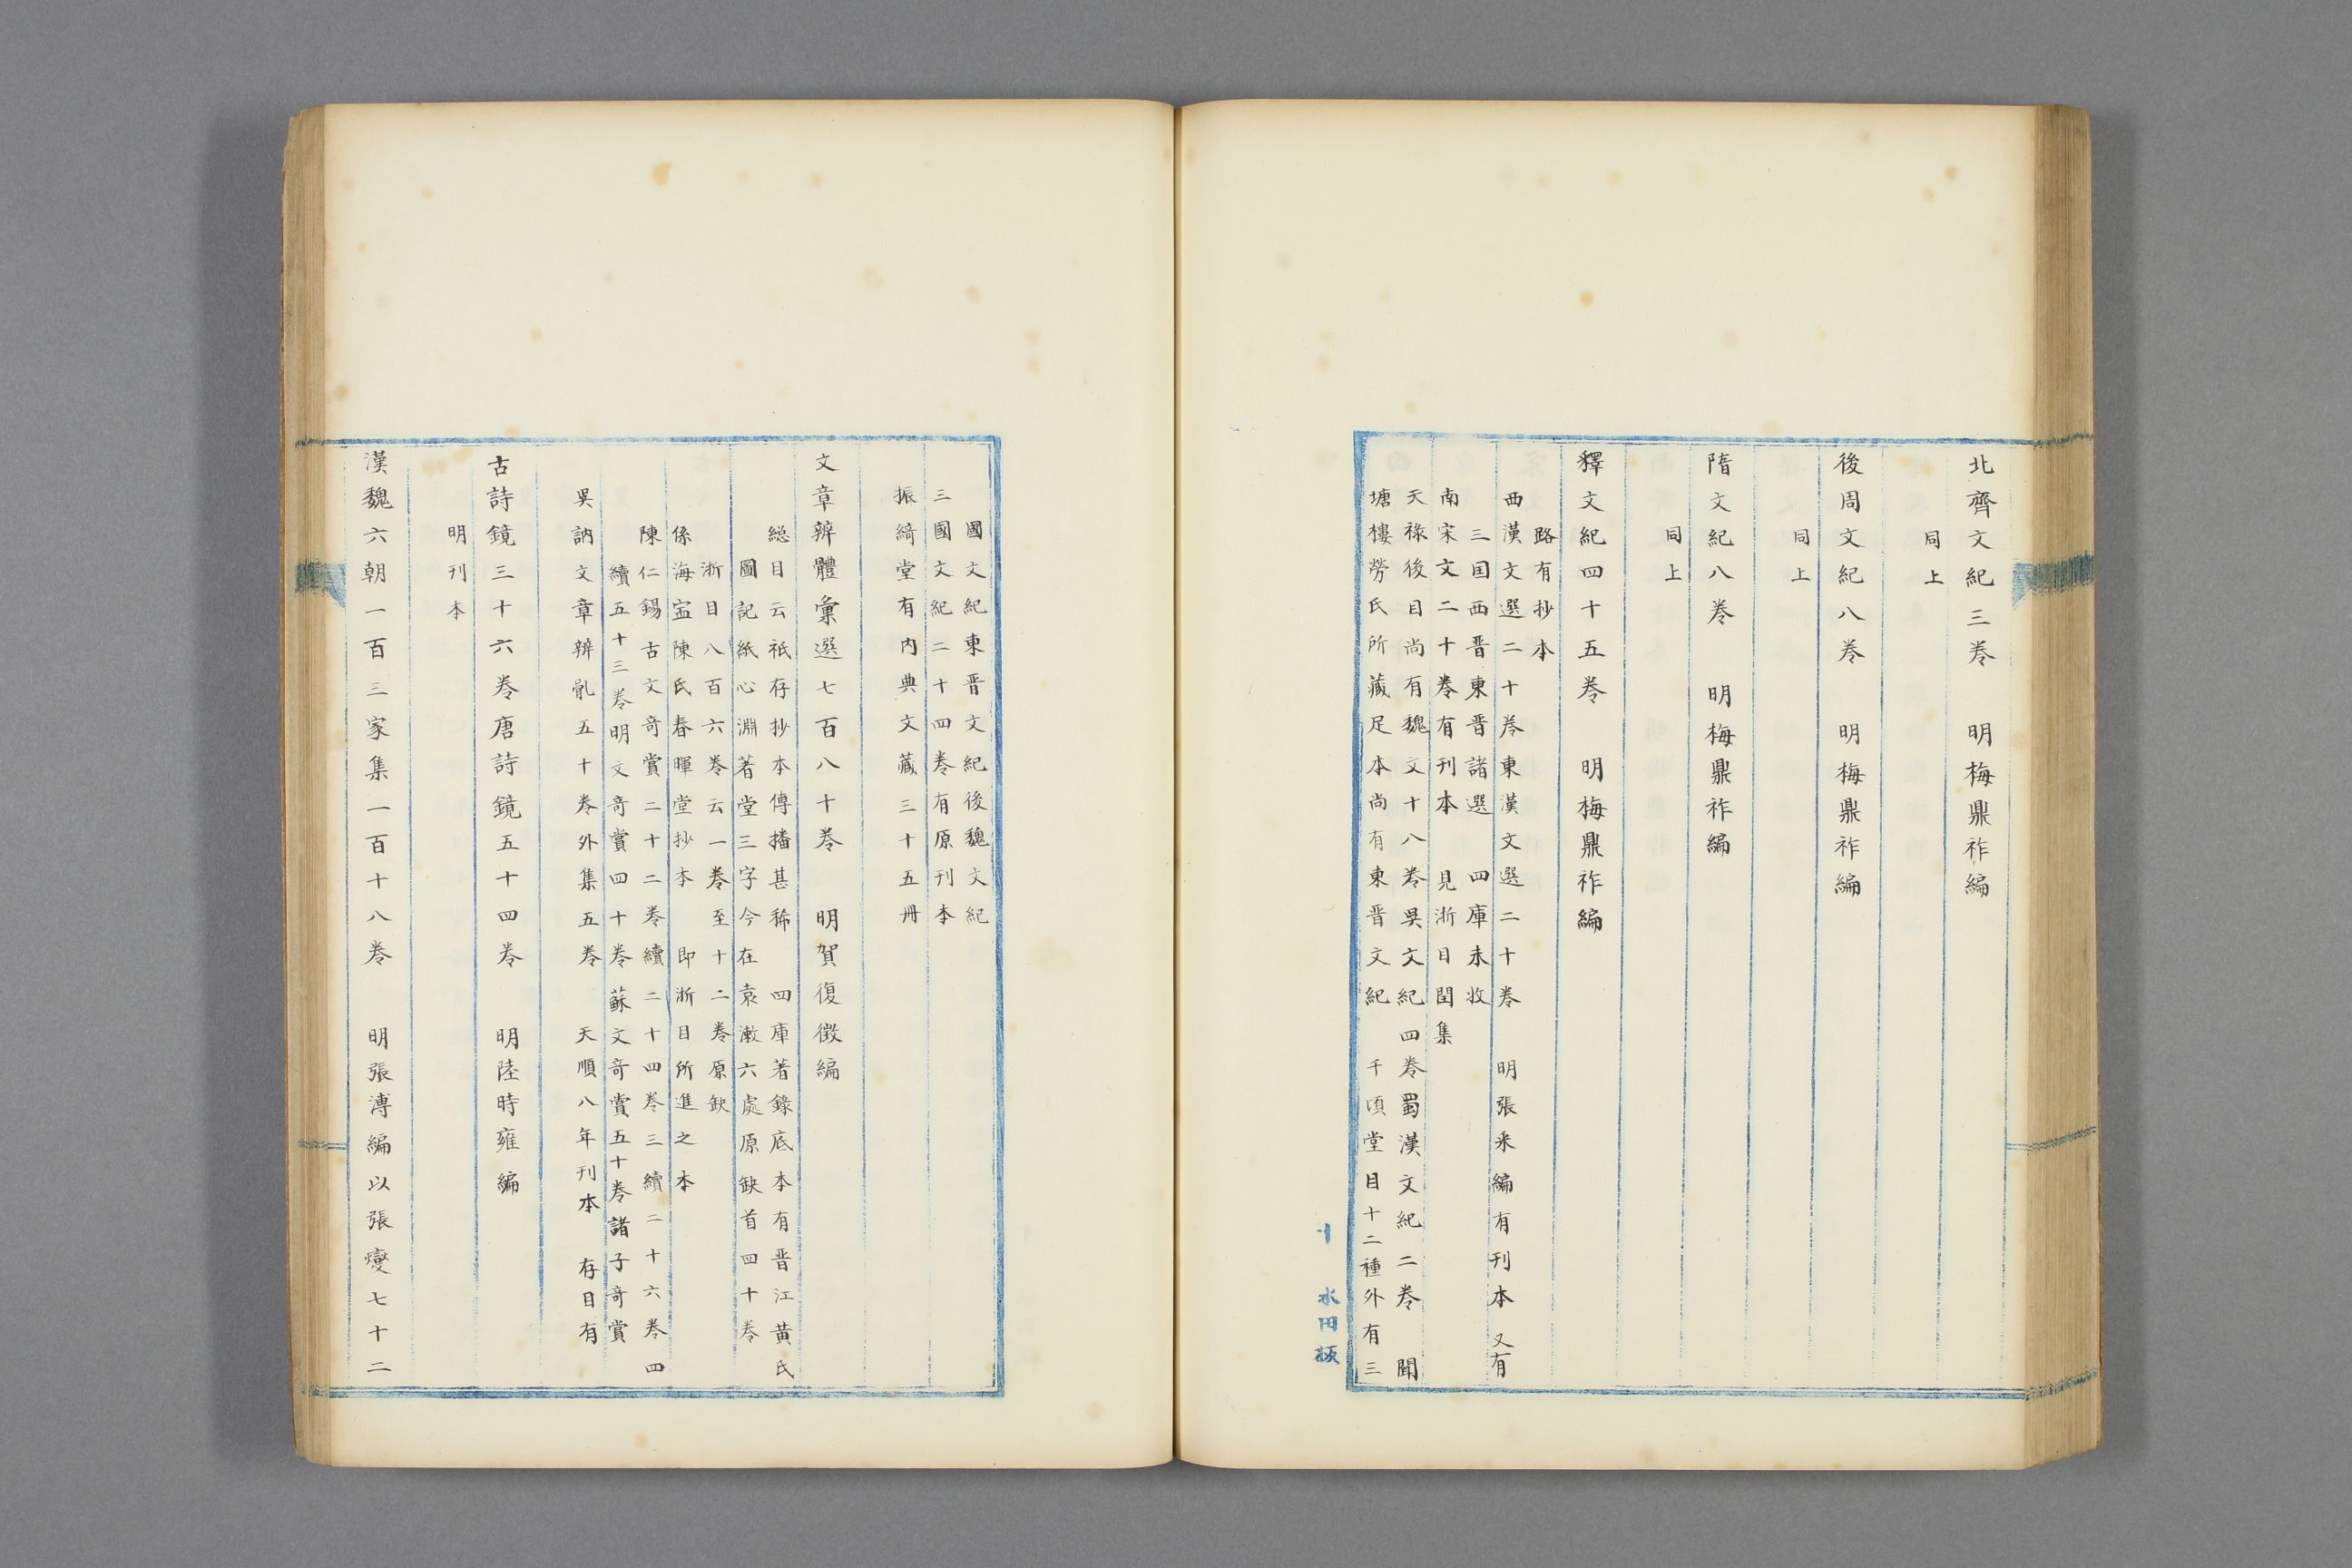 北齊文紀三巻　明梅鼎祚編
同上
後周文紀八巻　明梅鼎祚編
同上
隋文紀八巻　明梅鼎祚編
同上
釋文紀四十五巻　明梅鼎祚編
路有抄本
西漢文選二十巻東漢文選二十巻　明張采編有刊本又有
三国西晋東晋諸選　四庫未收
南宋文二十巻有刊本　見浙目閏集
天祿後目尚有魏文十八巻吳文紀四巻蜀漢文紀二巻　聞
塘棲勞氏所藏足本尚有東晋文紀　千頃堂目十二種外有三
水田版
國文紀東晋文紀後魏文紀
三國文紀二十四巻有原刊本
振綺堂有内典文藏三十五冊
文章辨體彙選七百八十巻　明賀復徵編
総目云祇存抄本傳播甚稀　四庫著錄底本有晋江黄氏
圖記紙心淵著堂三字今在袁漱六處原缺首四十巻
浙目八百六巻云一巻至十二巻原缺
係海寍陳氏春暉堂抄本　即浙目所進之本
陳仁錫古文奇賞二十二巻續二十四巻三續二十六巻四
續五十三巻明文奇賞四十巻蘇文奇賞五十巻諸子奇賞
吳訥文章辨體五十巻外集五巻　天順八年刊本　存目有
古詩鏡三十六巻唐詩鏡五十四巻　明陸時雍編
明刊本
漢魏六朝一百三家集一百十八巻　明張溥編以張燮七十二